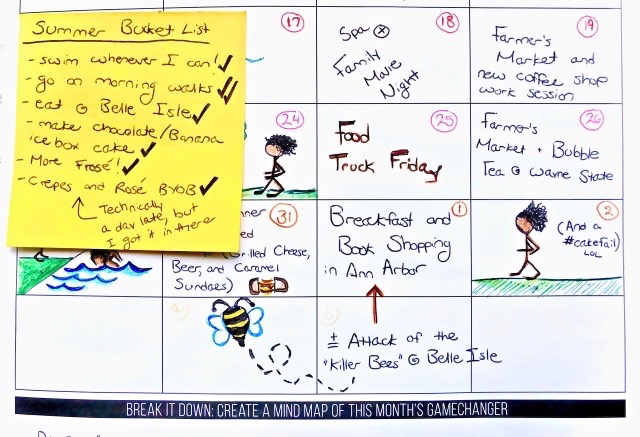 Summer Bucket List
- swim whenever I can!
- go on morning walks
- eat @ Belle Isle
- make chocolate/Banana
icebox cake
- More Frosé!
- Crepes and Rosé BYOB
Technically
a day late, but
I got it in there
17
18
Spa
Family
Movie
Night
19
Farmer's
Market and
new coffee shop
work session
24
25
Food
Truck Friday
26
Farmer's
Market + Bubble
Tea @ Wayne State
31
(Grilled Cheese,
Beer, and Caramel
Sundaes)
1
Breakfast and
Book Shopping
in Ann Arbor
2
(And a
#cakefail)
LOL
± Attack of the
"Killer Bees" @ Belle Isle
BREAK IT DOWN: CREATE A MIND MAP OF THIS MONTH'S GAMECHANGER